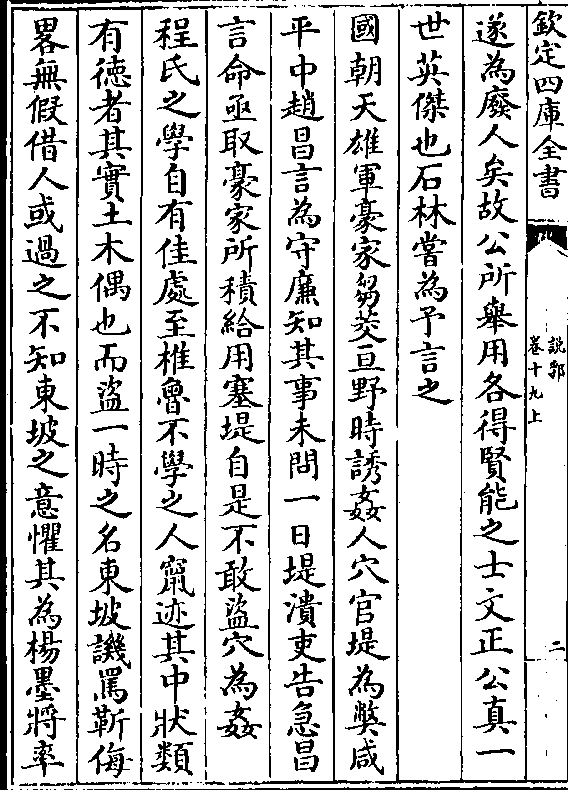 欽定四庫全書
說郛
卷十九上
二
遂為廢人矣故公所舉用各得賢能之士文正公真一
世英傑也石林嘗為予言之
國朝天雄軍豪家芻茭亘野時誘姦人穴官堤為弊咸
平中趙昌言為守廉知其事未問一日堤潰吏告急昌
言命亟取豪家所積給用塞堤自是不敢盜穴為姦
程氏之學自有佳處至椎魯不學之人竄迹其中狀類
有徳者其實土木偶也而盜一時之名東坡譏罵靳侮
畧無假借人或過之不知東坡之意懼其為楊墨將率